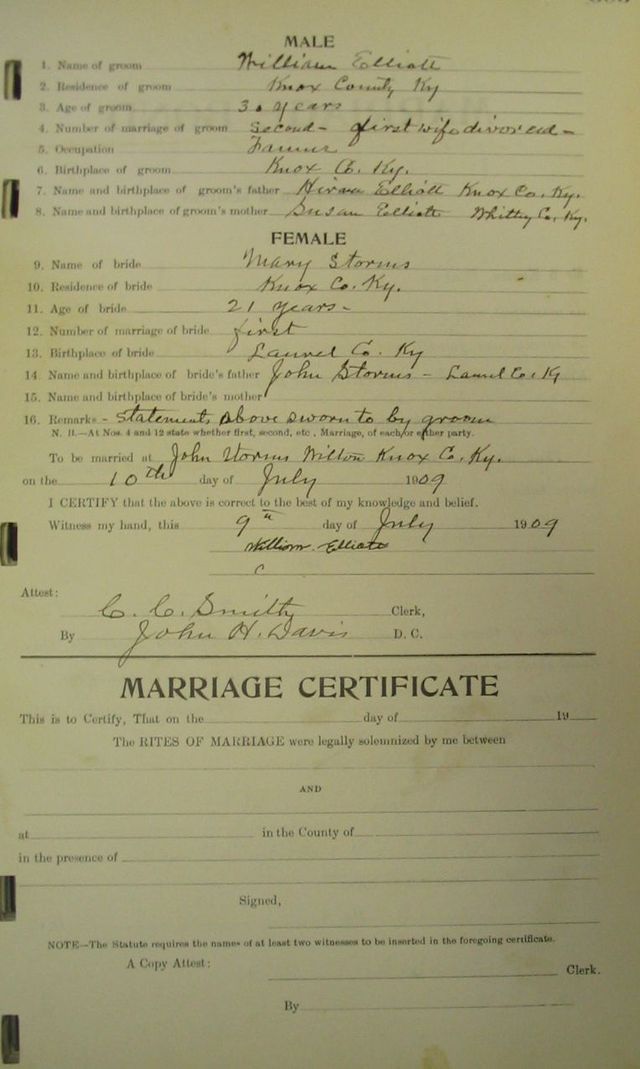 MALE
1. Name of groom William Elliott
2. Residence of groom Knox County Ky
3. Age of groom 30 years
4. Number of marriage of groom Second - first wife divorced -
5. Occupation Farmer
6. Birthplace of groom Knox Co. Ky.
7. Name and birthplace of groom's father Hiram Elliott Knox Co. Ky.
8. Name and birthplace of groom's mother Susan Elliott Whitley Co, Ky.
FEMALE
9. Name of bride Mary Storms
10. Residence of bride Knox Co. Ky.
11. Age of bride 21 years -
12. Number of marriage of bride first
13. Birthplace of bride Laurel Co. Ky
14 Name and birthplace of bride's father John Storms - Laurel Co. Ky
15. Name and birthplace of bride's mother
16. Remarks - Statements above sworn to by groom
N. B.—At Nos. 4 and 12 state whether first, second, etc., Marriage, of each or either party.
To be married at John Storms Wilton Knox Co. Ky.
on the 10th day of July 1909
I CERTIFY that the above is correct to the best of my knowledge and belief.
Witness my hand, this 9th day of July 1909
William Elliott
Attest:
C. C. Smith Clerk,
By John H. Davis D. C.
MARRIAGE CERTIFICATE
This is to Certify, That on the day of 19
The RITES OF MARRIAGE were legally solemnized by me between
AND
at in the County of
in the presence of
Signed,
NOTE—The Statute requires the names of at least two witnesses to be inserted in the foregoing certificate.
A Copy Attest:
Clerk.
By